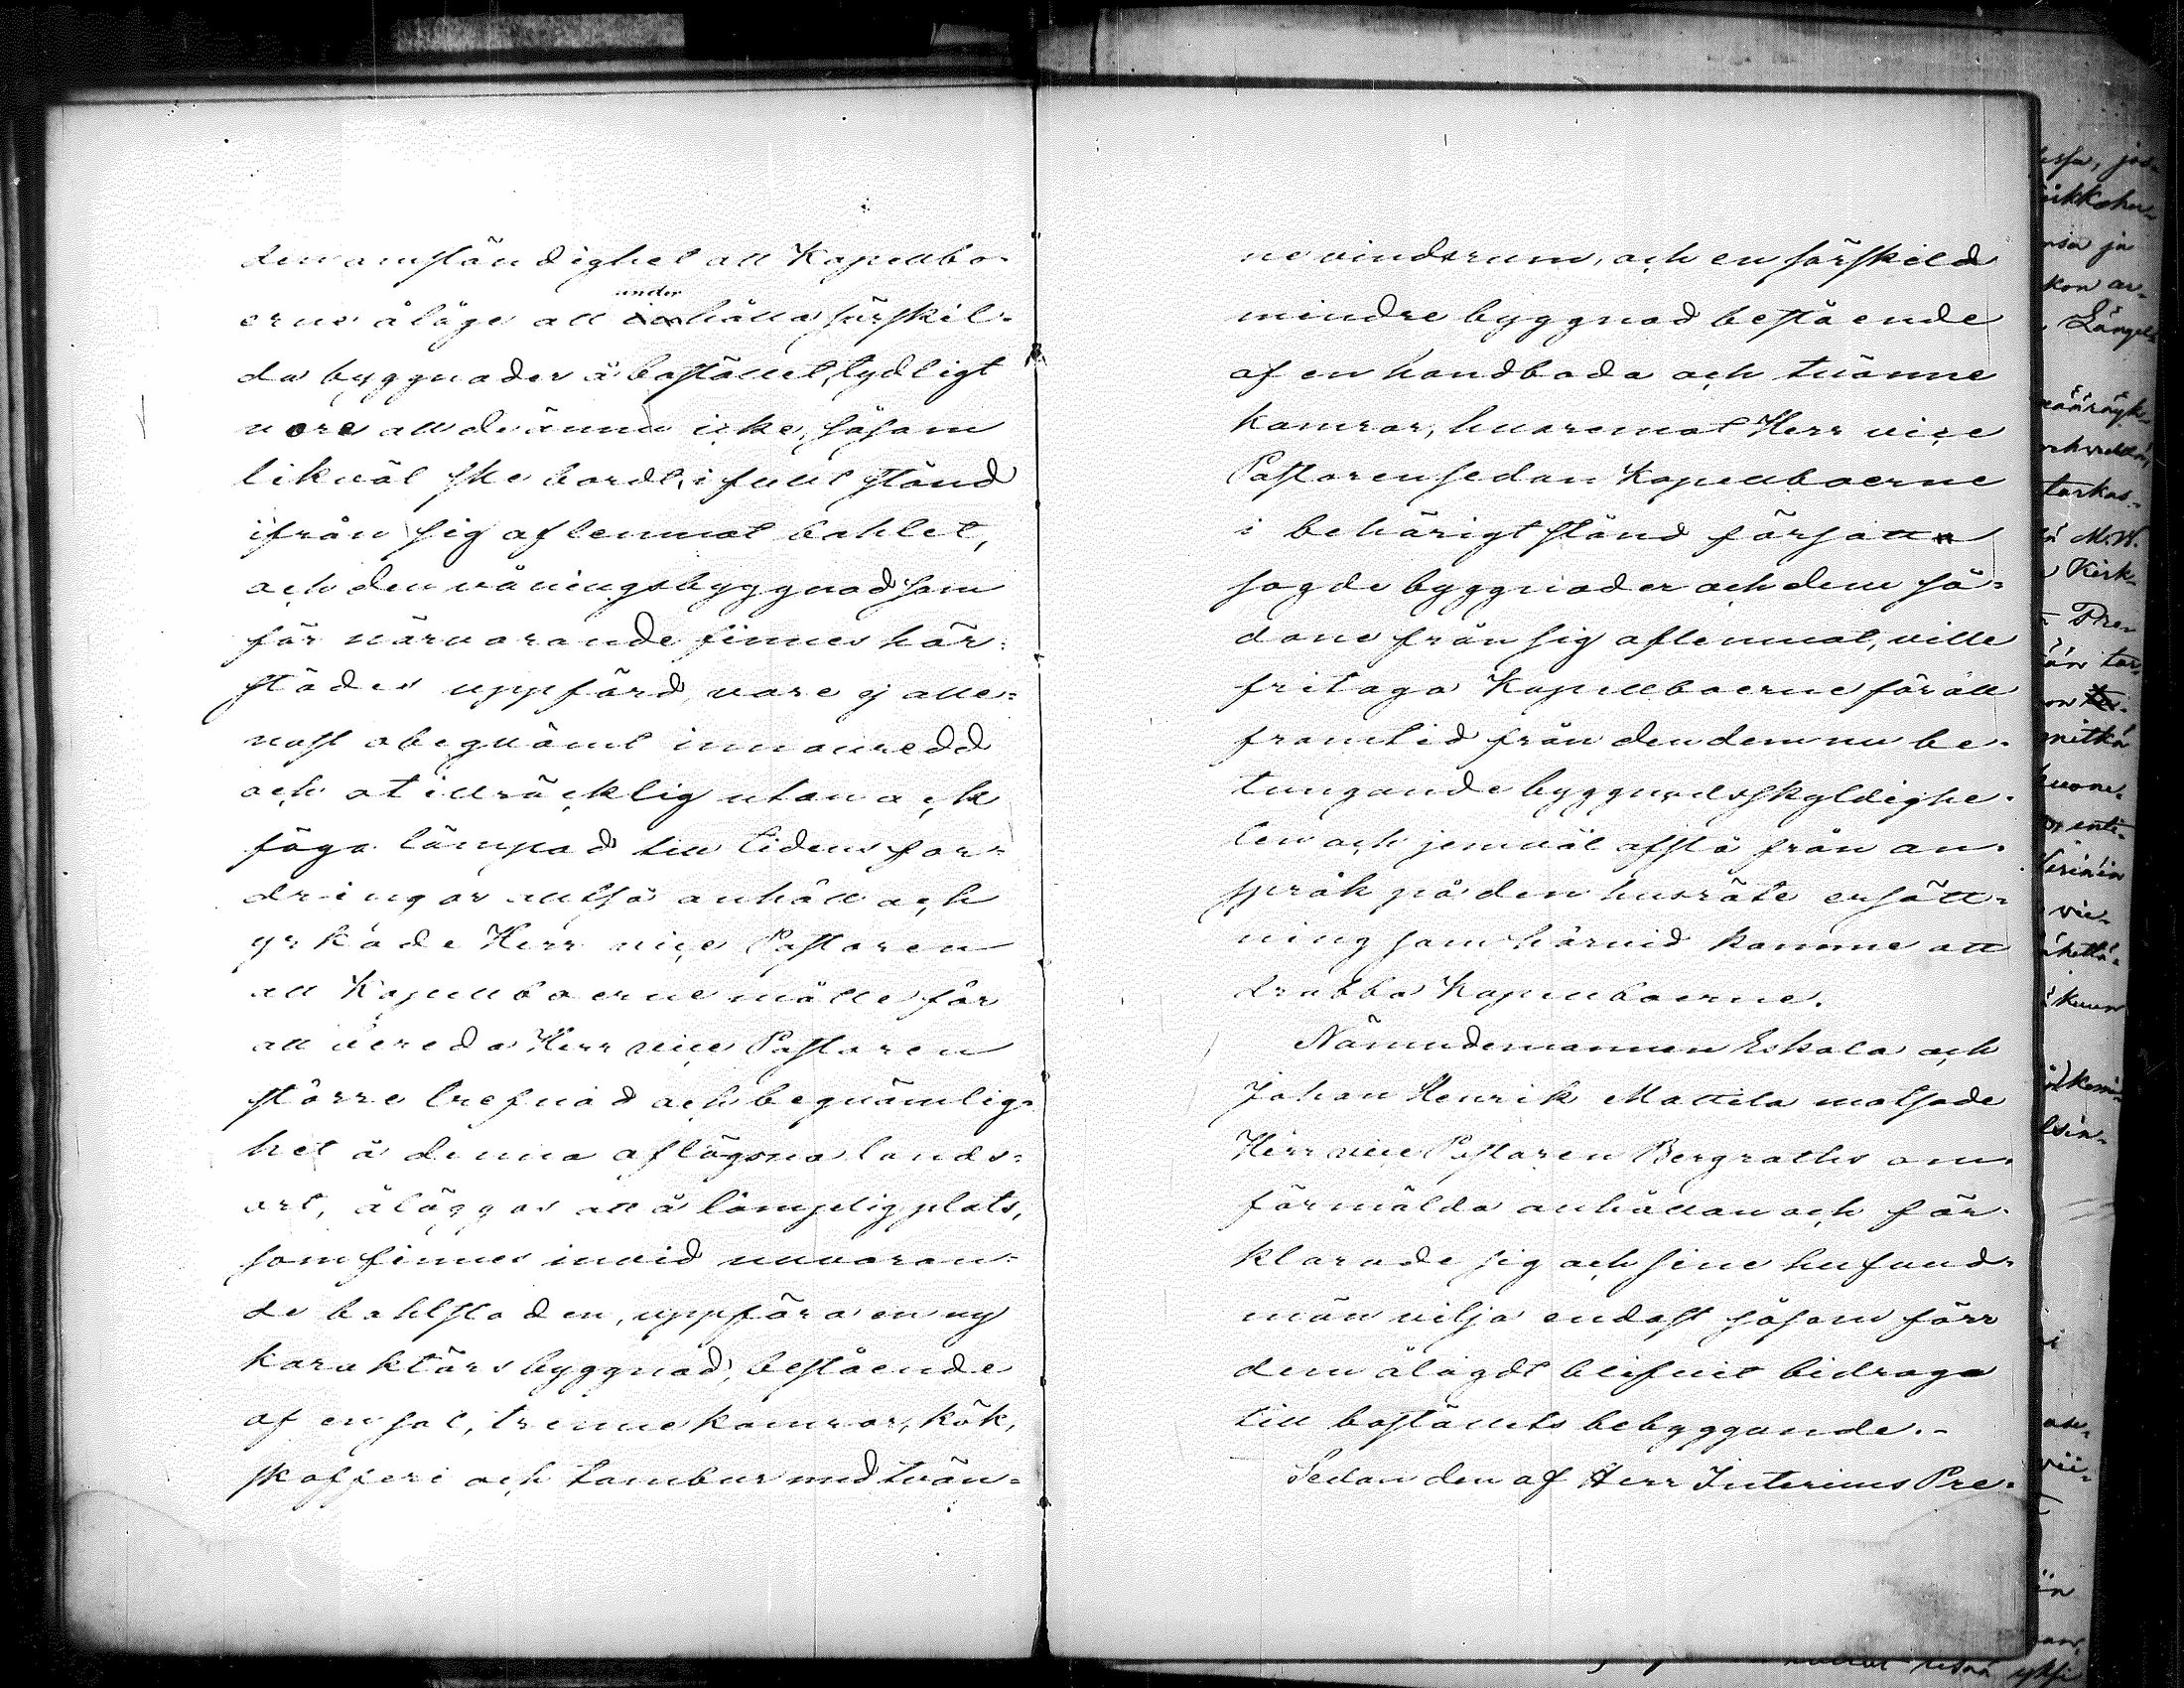 den omständighet att Kapellbo-
erne ålåge att underhålla särskil-
da byggnader å bostället, tydligt
vore att de ännu icke, såsom
likväl ske bordt, i fullt stånd
ifrån sig aflemnat bohlet,
och den våningsbyggnad som
för närvarande finnes här-
städes uppförd, vore ej alle-
nast obeqvämt innanredd
och otillräcklig utan ock
föga lämpad till tidens for-
dringar alltså anhöll och
yrkade Herr vice Pastoren
att Kapellboerne måtte för
att bereda Herr vice Pastoren
större trefnad och beqvämlig-
het å denna aflägsna lands-
ort, åläggas att å lämplig plats,
som finnes invid nuvaran-
de bohlstaden, uppföra en ny
karaktärsbyggnad, bestående
af en sal, trenne kamrar, kök,
skafferi och tambur med tvän-
ne vindsrum, och en särskild
mindre byggnad bestående
af en handboda och tvänne
kamrar, hvaremot Herr vice
Pastoren sedan Kapellboerne
i behörigt stånd försatt
sagde byggnader och dem så-
dane från sig aflemnat, ville
fritaga Kapellboerne för all
framtid från den dem nu be-
tungande byggnadsskyldighe-
ten och jemväl afstå från an-
språk på den husröte ersätt-
ning som härvid komme att
drabba Kapellboerne.
Nämndemannen Eskola och
Johan Henrik Mattila motsade
Herr vice Pastoren Bergroths om-
förmälda anhållan och för-
klarade sig och sine hufvud-
män vilja endast såsom förr
dem ålagdt blifvit bidraga
till boställets bebyggande.-
Sedan den af Herr Interims Pre-